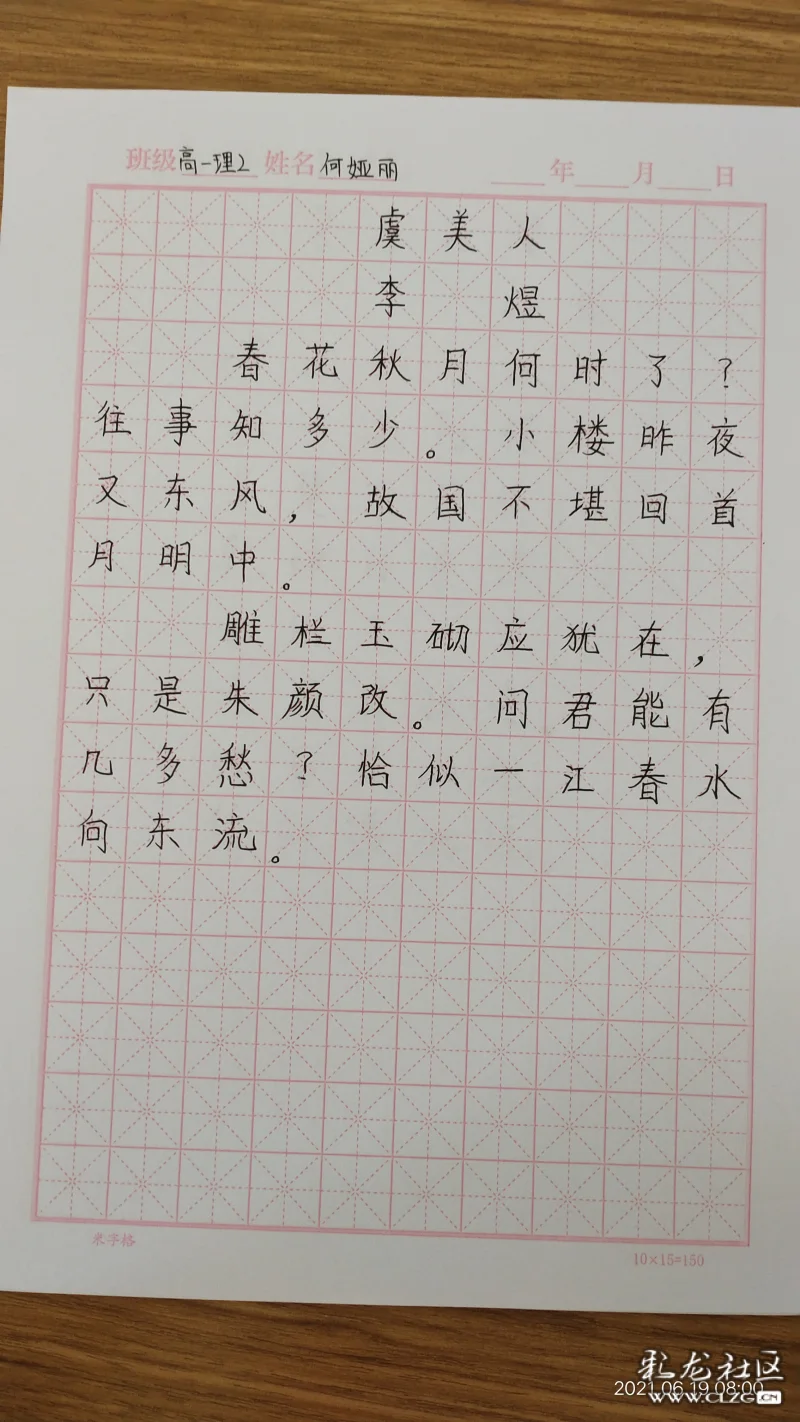 班级高一理2 姓名何娅丽 年 月 日
虞美人
李 煜
春花秋月何时了?
往事知多少。小楼昨夜
又东风,故国不堪回首
月明中。
雕栏玉砌应犹在,
只是朱颜改。问君能有
几多愁?恰似一江春水
向东流。
米字格 10×15=150
彩龙社区
2021.06.19 08:00
WWW.CLZG.CN